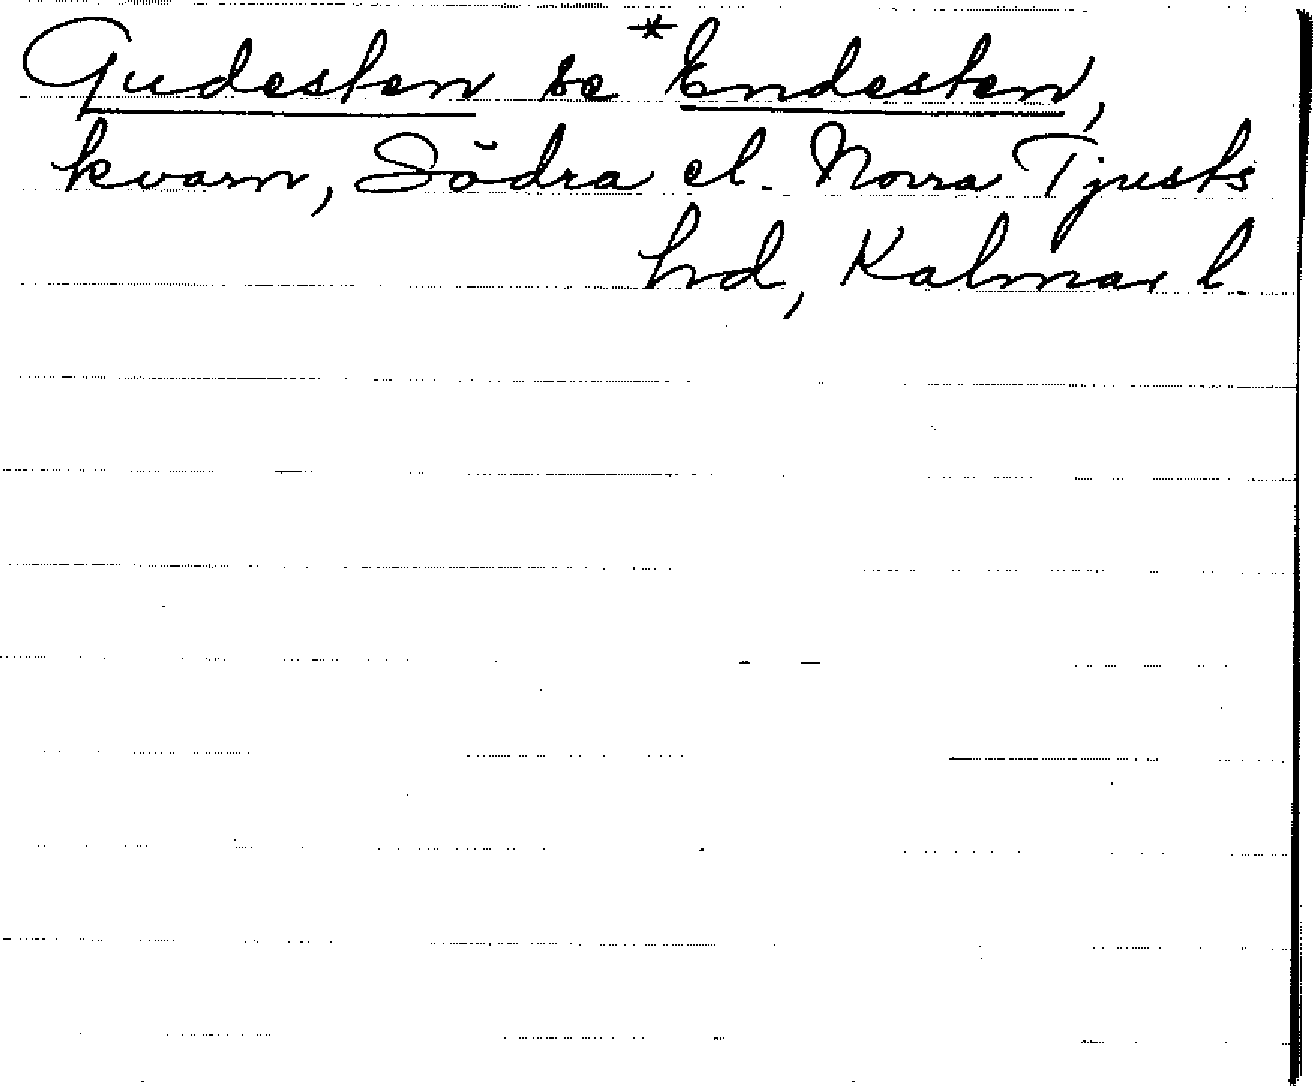 Gudesten se *Endesten,
kvarn, Södra el. Norra Tjusts
hd, Kalmar l.